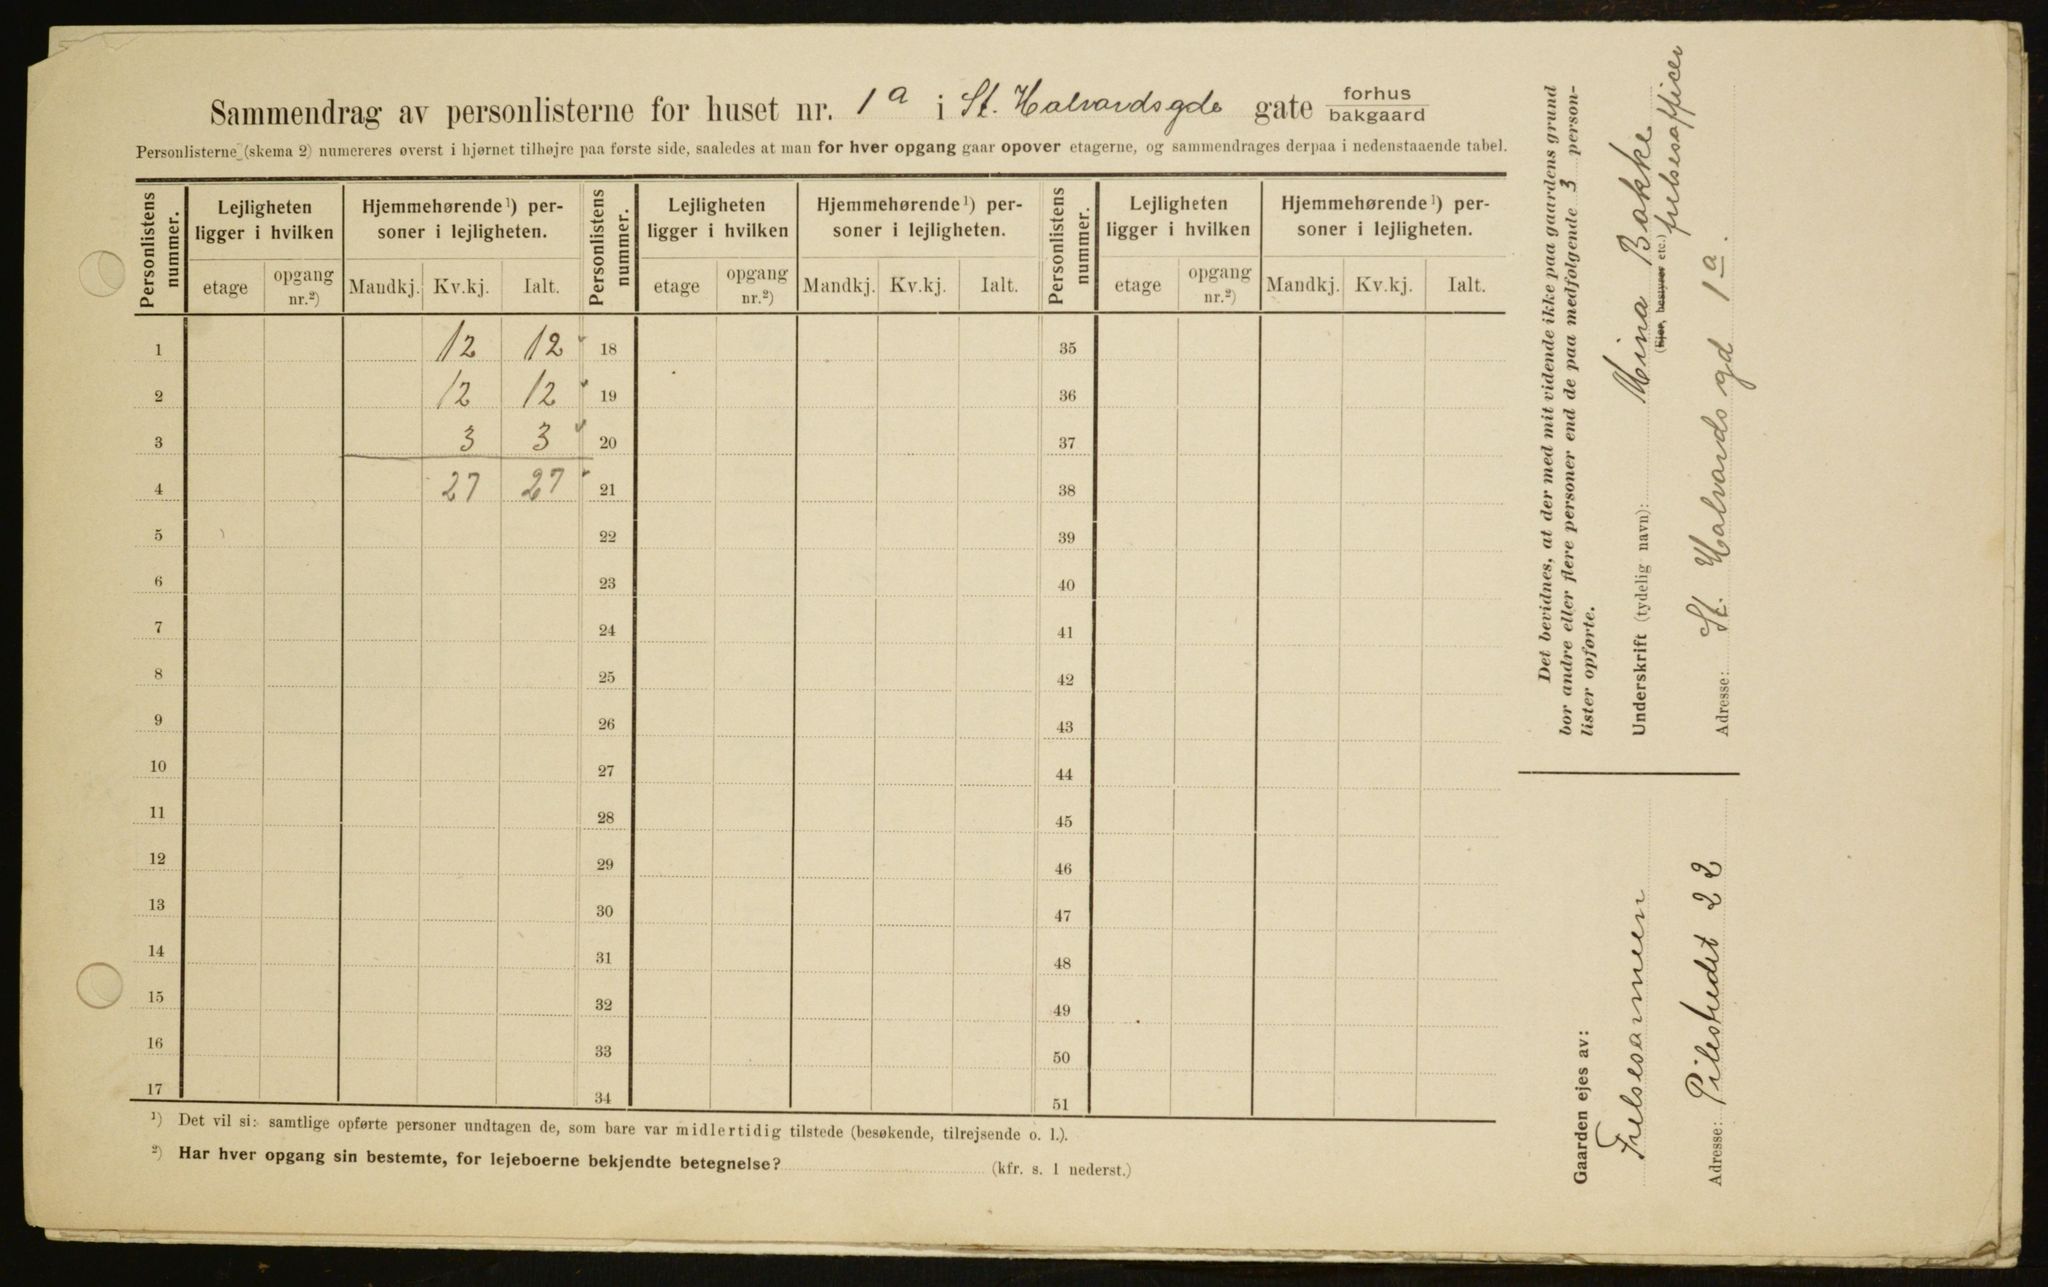 Sammendrag av personlisterne for huset nr. 1a i St. Halvardsgde gate forhus
bakgaard
Personlisterne (skema 2) numereres øverst i hjørnet tilhøjre paa første side, saaledes at man for hver opgang gaar opover etagerne, og sammendrages derpaa i nedenstaaende tabel.
Personlistens nummer. Lejligheten ligger i hvilken Hjemmehørende¹) personer i lejligheten. Personlistens nummer. Lejligheten ligger i hvilken Hjemmehørende¹) personer i lejligheten. Personlistens nummer. Lejligheten ligger i hvilken Hjemmehørende¹) personer i lejligheten.
etage opgang nr.²) Mandkj. Kv.kj. Ialt. etage opgang nr.²) Mandkj. Kv.kj. Ialt. etage opgang nr.²) Mandkj. Kv.kj. Ialt.
1 12 12 18 35
2 12 12 19 36
3 3 3 20 37
4 27 27 21 38
5 22 39
6 23 40
7 24 41
8 25 42
9 26 43
10 27 44
11 28 45
12 29 46
13 30 47
14 31 48
15 32 49
16 33 50
17 34 51
¹) Det vil si: samtlige opførte personer undtagen de, som bare var midlertidig tilstede (besøkende, tilrejsende o. l.).
²) Har hver opgang sin bestemte, for lejeboerne bekjendte betegnelse? (kfr. s. 1 nederst.)
Det bevidnes, at der med mit vidende ikke paa gaardens grund
bor andre eller flere personer end de paa medfølgende 3 person-
lister opførte.
Underskrift (tydelig navn): Mina Bakke
(Ejer, bestyrer etc.) frelsesofficer
Adresse: St. Halvards gd 1a.
Gaarden ejes av:
Frelsesarmeen
Adresse: Pilestredet 22